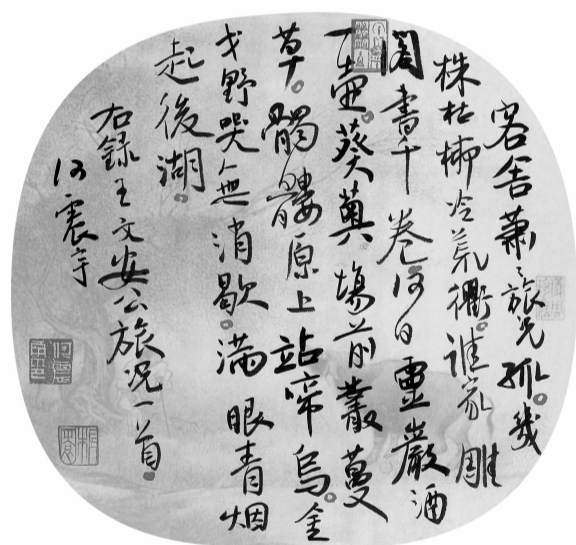 客舍蕭々旅况孤。幾
株枯柳冷荒衢。誰家雕
閣書千卷何日靈巖酒
一壺。葵薁場前叢蔓
草。髑髏原上站啼烏。金
戈野哭無消歇。滿眼青烟
起後湖。
右錄王文安公旅况一首。
何震宇